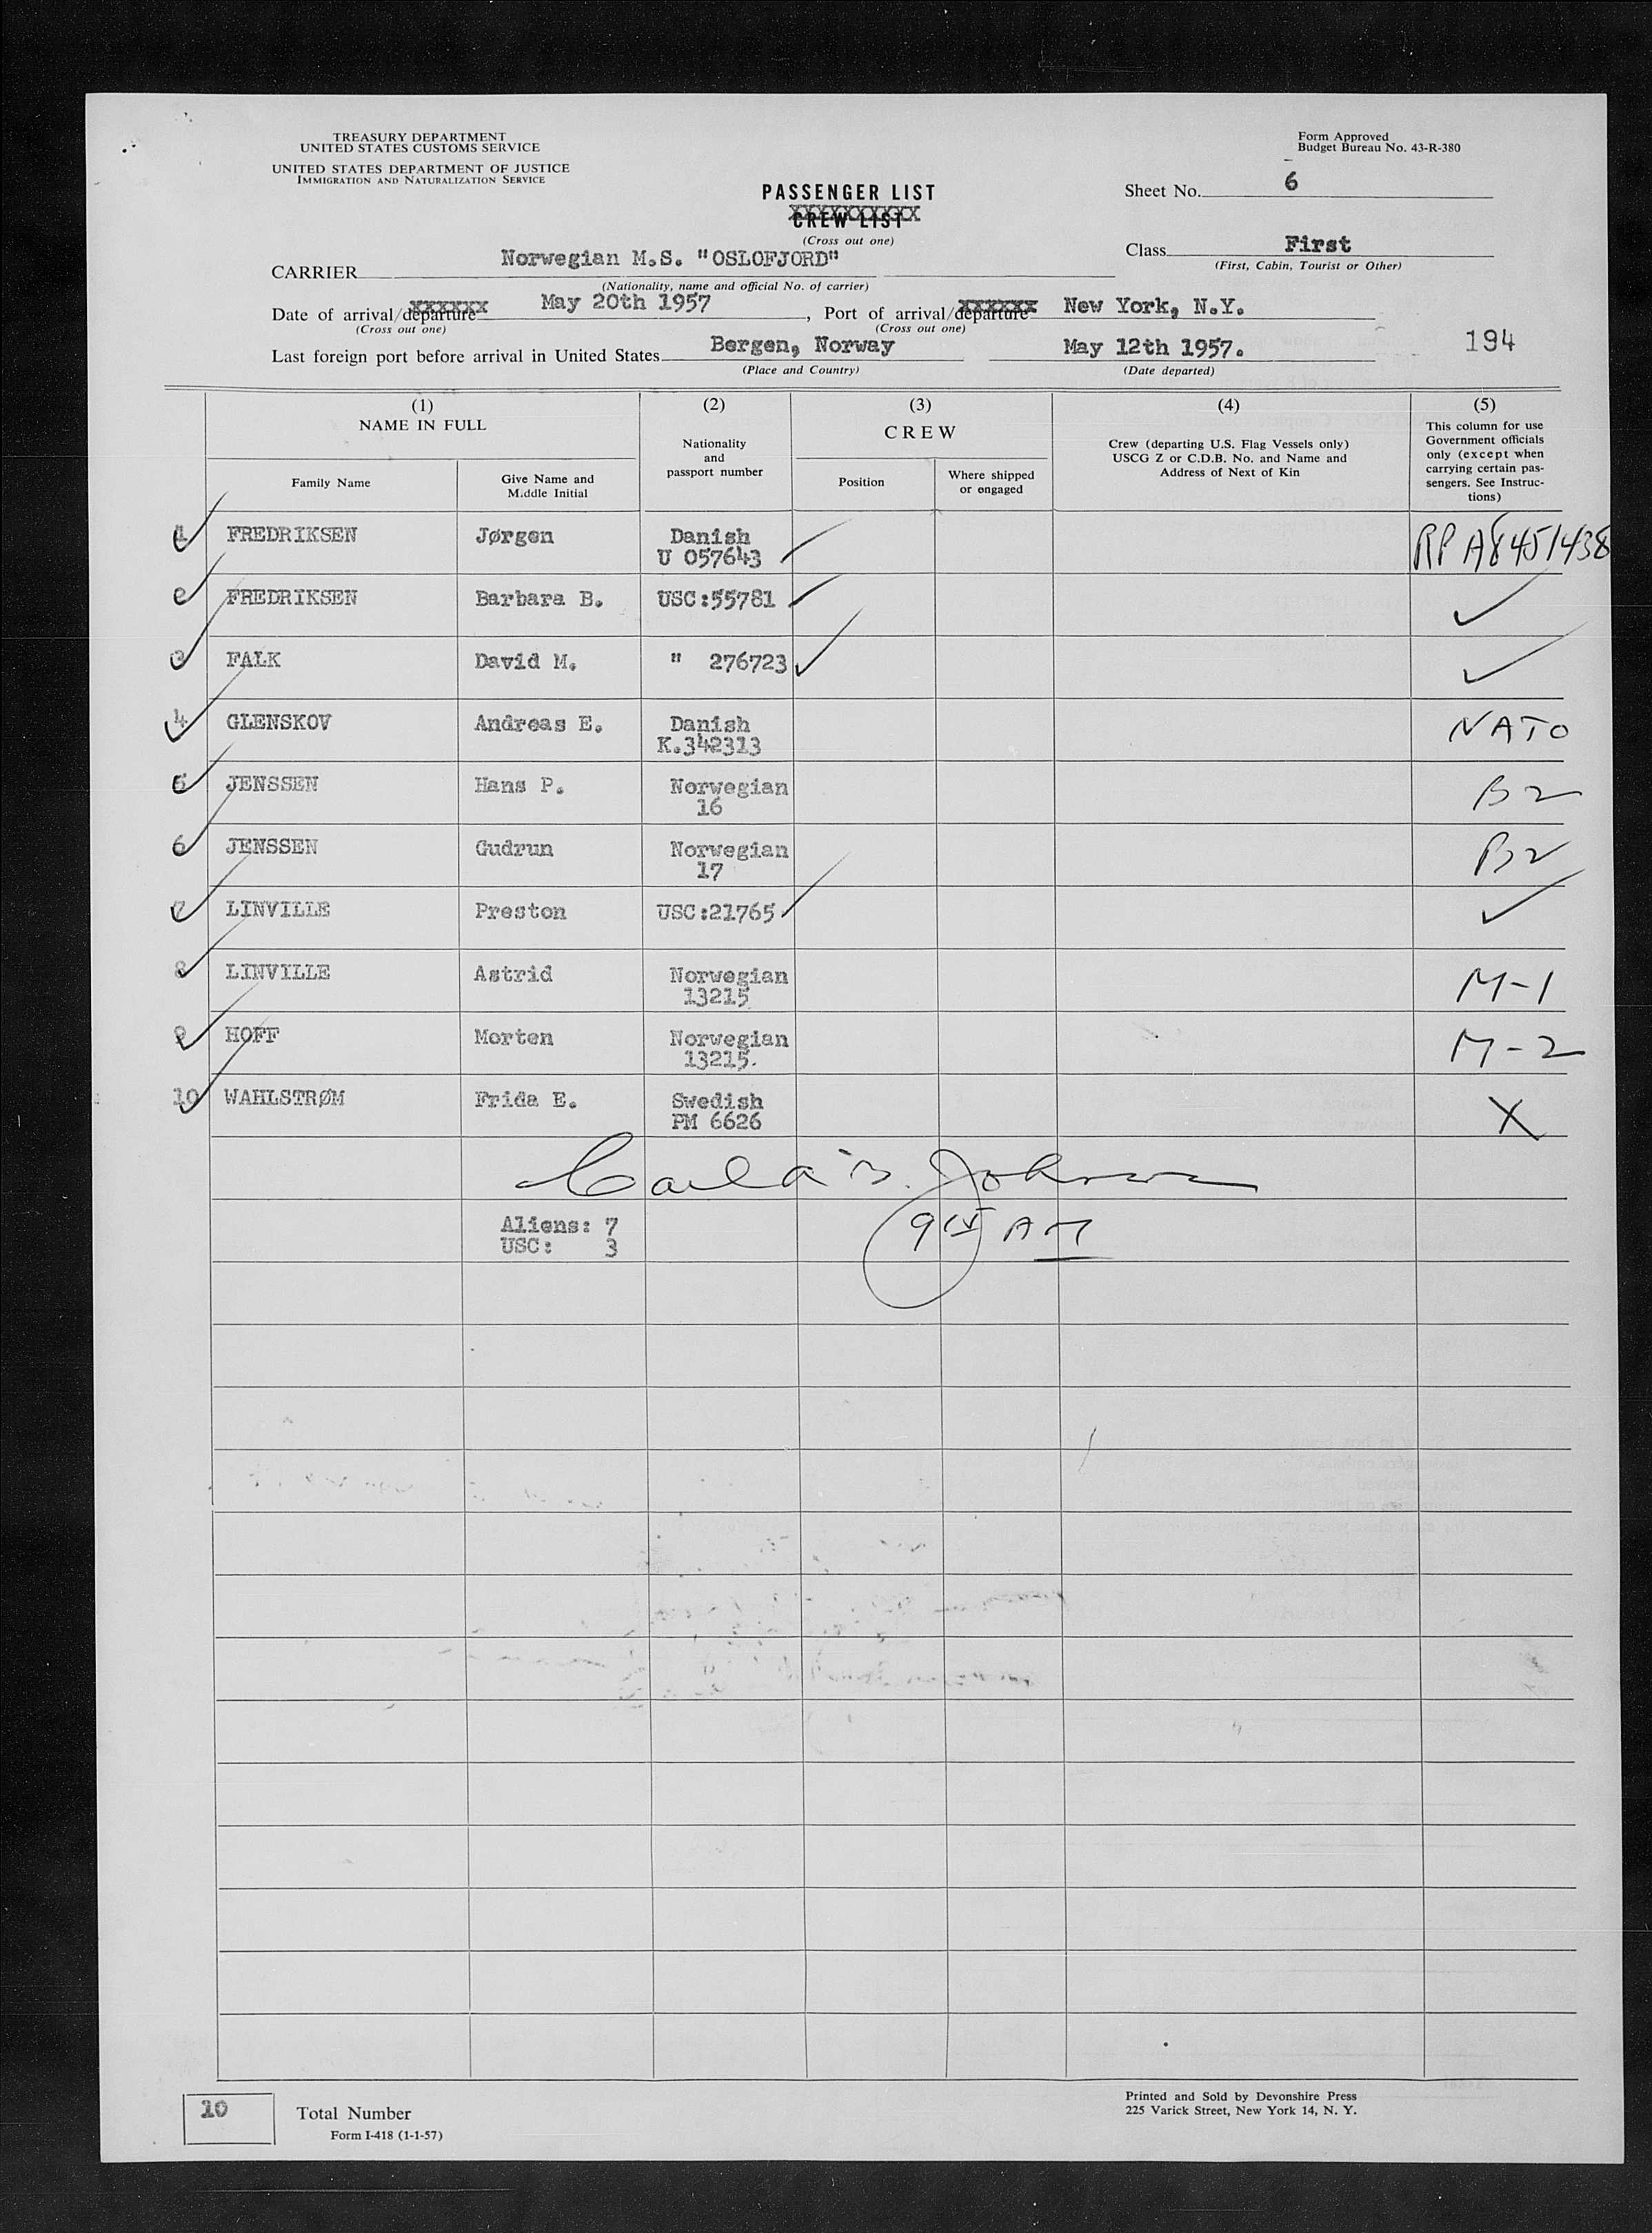 TREASURY DEPARTMENT
UNITED STATES CUSTOMS SERVICE
UNITED STATES DEPARTMENT OF JUSTICE
IMMIGRATION AND NATURALIZATION SERVICE
Form Approved
Budget Bureau No. 43-R-380
PASSENGER LIST
CREW LIST
(Cross out one)
Sheet No. 6
Class First
(First, Cabin, Tourist or Other)
CARRIER Norwegian M.S. "OSLOFJORD"
(Nationality, name and official No. of carrier)
Date of arrival/departure May 20th 1957, Port of arrival/departure New York, N.Y.
(Cross out one) (Cross out one)
Last foreign port before arrival in United States Bergen, Norway May 12th 1957.
(Place and Country) (Date departed)
194
(1) (2) (3) (4) (5)
NAME IN FULL
Family Name
Give Name and
Middle Initial
Nationality
and
passport number
CREW
Position
Where shipped
or engaged
Crew (departing U.S. Flag Vessels only)
USCG Z or C.D.B. No. and Name and
Address of Next of Kin
This column for use
Government officials
only (except when
carrying certain pas-
sengers. See Instruc-
tions)
1 FREDRIKSEN Jørgen Danish RP A8451438
U 057643
2 FREDRIKSEN Barbara B. USC:55781
3 FALK David M. " 276723
4 GLENSKOV Andreas E. Danish NATO
K.342313
5 JENSSEN Hans P. Norwegian B2
16
6 JENSSEN Gudrun Norwegian B2
17
7 LINVILLE Preston USC:21765
8 LINVILLE Astrid Norwegian M-1
13215
9 HOFF Morten Norwegian M-2
13215.
10 WAHLSTRØM Frida E. Swedish X
PM 6626
Johnson
Aliens: 7
USC: 3
AM
10 Total Number
Form I-418 (1-1-57)
Printed and Sold by Devonshire Press
225 Varick Street, New York 14, N. Y.